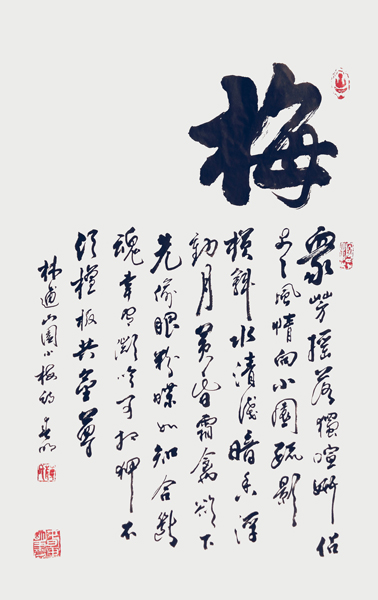 梅
眾芳搖落獨喧妍佔
盡風情向小園疏影
橫斜水清淺暗香浮
動月黃昏霜禽欲下
先偷眼粉蝶如知合斷
魂幸有微吟可相狎不
須檀板共金尊
林逋山園小梅詩